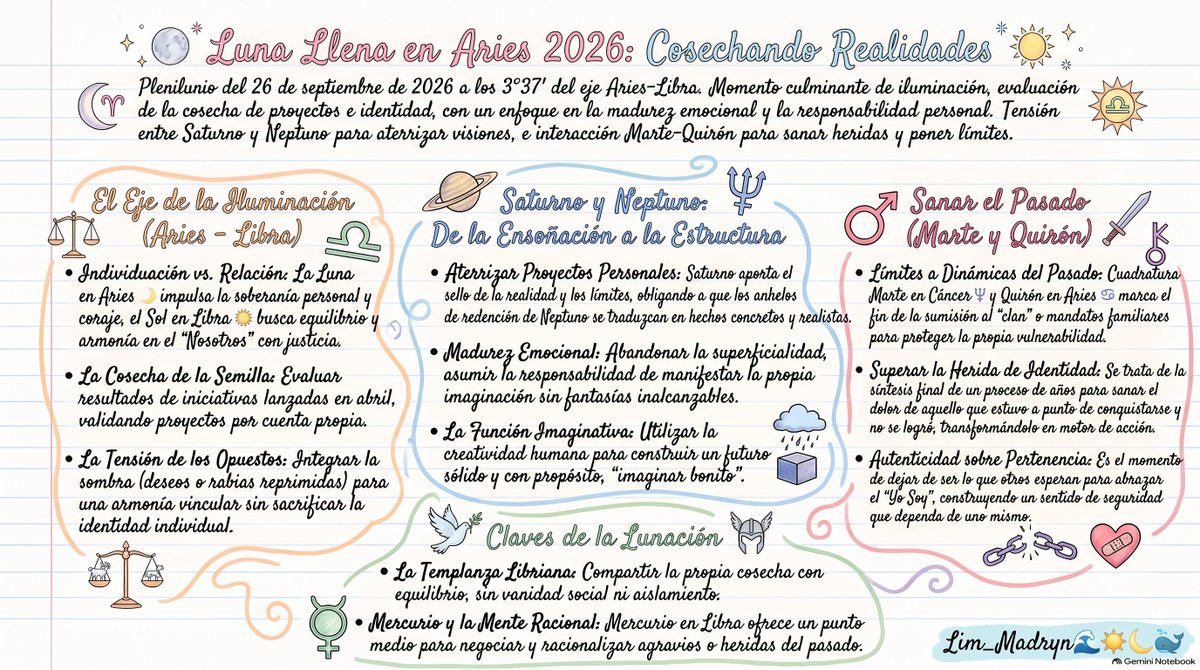 Luna Llena en Aries 2026: Cosechando Realidades
Plenilunio del 26 de septiembre de 2026 a los 3°37' del eje Aries-Libra. Momento culminante de iluminación, evaluación
de la cosecha de proyectos e identidad, con un enfoque en la madurez emocional y la responsabilidad personal. Tensión
entre Saturno y Neptuno para aterrizar visiones, e interacción Marte-Quirón para sanar heridas y poner límites.
El Eje de la Iluminación
(Aries - Libra)
• Individuación vs. Relación: La Luna
en Aries 🌙 impulsa la soberanía personal y
coraje, el Sol en Libra ☀️ busca equilibrio y
armonía en el "Nosotros" con justicia.
• La Cosecha de la Semilla: Evaluar
resultados de iniciativas lanzadas en abril,
validando proyectos por cuenta propia.
• La Tensión de los Opuestos: Integrar la
sombra (deseos o rabias reprimidas) para
una armonía vincular sin sacrificar la
identidad individual.
Saturno y Neptuno:
De la Ensoñación a la Estructura
• Aterrizar Proyectos Personales: Saturno aporta el
sello de la realidad y los límites, obligando a que los anhelos
de redención de Neptuno se traduzcan en hechos concretos y realistas.
• Madurez Emocional: Abandonar la superficialidad,
asumir la responsabilidad de manifestar la propia
imaginación sin fantasías inalcanzables.
• La Función Imaginativa: Utilizar la
creatividad humana para construir un futuro
sólido y con propósito, "imaginar bonito".
Sanar el Pasado
(Marte y Quirón)
• Límites a Dinámicas del Pasado: Cuadratura
Marte en Cáncer ♆ y Quirón en Aries ♋ marca el
fin de la sumisión al "clan" o mandatos familiares
para proteger la propia vulnerabilidad.
• Superar la Herida de Identidad: Se trata de la
síntesis final de un proceso de años para sanar el
dolor de aquello que estuvo a punto de conquistarse y
no se logró, transformándolo en motor de acción.
• Autenticidad sobre Pertenencia: Es el momento
de dejar de ser lo que otros esperan para abrazar
el "Yo Soy", construyendo un sentido de seguridad
que dependa de uno mismo.
Claves de la Lunación
• La Templanza Libriana: Compartir la propia cosecha con
equilibrio, sin vanidad social ni aislamiento.
• Mercurio y la Mente Racional: Mercurio en Libra ofrece un punto
medio para negociar y racionalizar agravios o heridas del pasado.
Lim_Madryn🌊☀️🌙🐋
Gemini Notebook